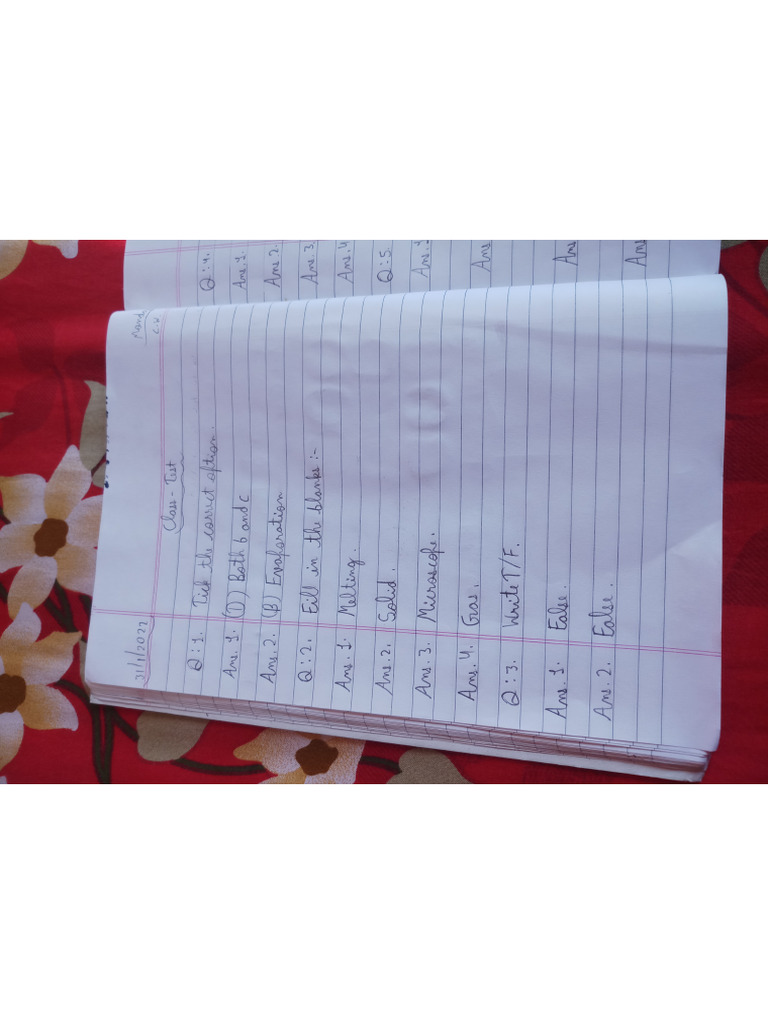 31/1/2022
Class-Test
Q:1. Tick the correct option.
Ans.1. (D) Both b and c
Ans.2. (B) Evaporation
Q:2. Fill in the blanks:-
Ans.1. Melting.
Ans.2. Solid.
Ans.3. Microscope.
Ans.4. Gas.
Q:3. Write T/F.
Ans.1. False.
Ans.2. False.
Q:4.
Ans.1.
Ans.2.
Ans.3
Ans.4
Q:5.
Ans.1
Ans
Ans
Ans